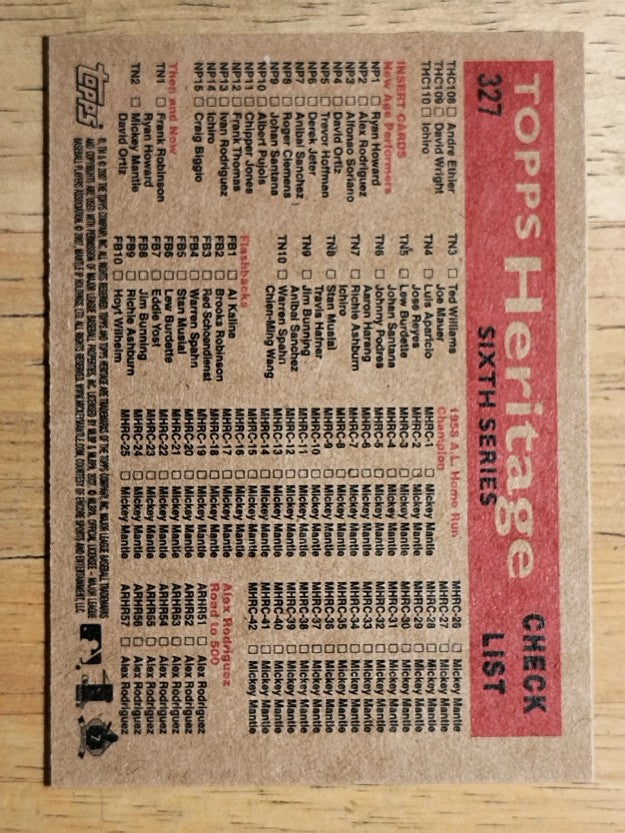 TOPPS Heritage
CHECK
LIST
327
SIXTH SERIES
THC108 □ Andre Ethier
THC109 □ David Wright
THC110 □ Ichiro
INSERT CARDS
New Age Performers
NP1 □ Ryan Howard
NP2 □ Alex Rodriguez
NP3 □ Alfonso Soriano
NP4 □ David Ortiz
NP5 □ Trevor Hoffman
NP6 □ Derek Jeter
NP7 □ Anibal Sanchez
NP8 □ Roger Clemens
NP9 □ Johan Santana
NP10 □ Albert Pujols
NP11 □ Chipper Jones
NP12 □ Frank Thomas
NP13 □ Ivan Rodriguez
NP14 □ Ichiro
NP15 □ Craig Biggio
Then and Now
TN1 □ Frank Robinson
Ryan Howard
TN2 □ Mickey Mantle
David Ortiz
TN3 □ Ted Williams
Joe Mauer
TN4 □ Luis Aparicio
Jose Reyes
TN5 □ Lew Burdette
Johan Santana
TN6 □ Johnny Podres
Aaron Harang
TN7 □ Richie Ashburn
Ichiro
TN8 □ Stan Musial
Travis Hafner
TN9 □ Jim Bunning
Anibal Sanchez
TN10 □ Warren Spahn
Chien-Ming Wang
Flashbacks
FB1 □ Al Kaline
FB2 □ Brooks Robinson
FB3 □ Red Schoendienst
FB4 □ Warren Spahn
FB5 □ Stan Musial
FB6 □ Lew Burdette
FB7 □ Eddie Yost
FB8 □ Jim Bunning
FB9 □ Richie Ashburn
FB10 □ Hoyt Wilhelm
1958 A.L. Home Run
Champion
MHRC-1 □ Mickey Mantle
MHRC-2 □ Mickey Mantle
MHRC-3 □ Mickey Mantle
MHRC-4 □ Mickey Mantle
MHRC-5 □ Mickey Mantle
MHRC-6 □ Mickey Mantle
MHRC-7 □ Mickey Mantle
MHRC-8 □ Mickey Mantle
MHRC-9 □ Mickey Mantle
MHRC-10 □ Mickey Mantle
MHRC-11 □ Mickey Mantle
MHRC-12 □ Mickey Mantle
MHRC-13 □ Mickey Mantle
MHRC-14 □ Mickey Mantle
MHRC-15 □ Mickey Mantle
MHRC-16 □ Mickey Mantle
MHRC-17 □ Mickey Mantle
MHRC-18 □ Mickey Mantle
MHRC-19 □ Mickey Mantle
MHRC-20 □ Mickey Mantle
MHRC-21 □ Mickey Mantle
MHRC-22 □ Mickey Mantle
MHRC-23 □ Mickey Mantle
MHRC-24 □ Mickey Mantle
MHRC-25 □ Mickey Mantle
MHRC-26 □ Mickey Mantle
MHRC-27 □ Mickey Mantle
MHRC-28 □ Mickey Mantle
MHRC-29 □ Mickey Mantle
MHRC-30 □ Mickey Mantle
MHRC-31 □ Mickey Mantle
MHRC-32 □ Mickey Mantle
MHRC-33 □ Mickey Mantle
MHRC-34 □ Mickey Mantle
MHRC-35 □ Mickey Mantle
MHRC-36 □ Mickey Mantle
MHRC-37 □ Mickey Mantle
MHRC-38 □ Mickey Mantle
MHRC-39 □ Mickey Mantle
MHRC-40 □ Mickey Mantle
MHRC-41 □ Mickey Mantle
MHRC-42 □ Mickey Mantle
Alex Rodriguez
Road to 500
ARHR51 □ Alex Rodriguez
ARHR52 □ Alex Rodriguez
ARHR53 □ Alex Rodriguez
ARHR54 □ Alex Rodriguez
ARHR55 □ Alex Rodriguez
ARHR56 □ Alex Rodriguez
ARHR57 □ Alex Rodriguez
topps
®, TM & © 2007 THE TOPPS COMPANY, INC. ALL RIGHTS RESERVED. TOPPS AND TOPPS HERITAGE ARE TRADEMARKS OF THE TOPPS COMPANY, INC. MAJOR LEAGUE BASEBALL TRADEMARKS
AND COPYRIGHTS ARE USED WITH PERMISSION OF MAJOR LEAGUE BASEBALL PROPERTIES, INC. LICENSED BY MLBP & MLBPA, 2007. © MLBPA, OFFICIAL LICENSEE - MAJOR LEAGUE
BASEBALL PLAYERS ASSOCIATION. © 2007, MANTLE IP HOLDINGS, LTD. ALL RIGHTS RESERVED. WWW.MICKEYMANTLE.COM. COURTESY OF ENCORE SPORTS AND ENTERTAINMENT, LLC.
7